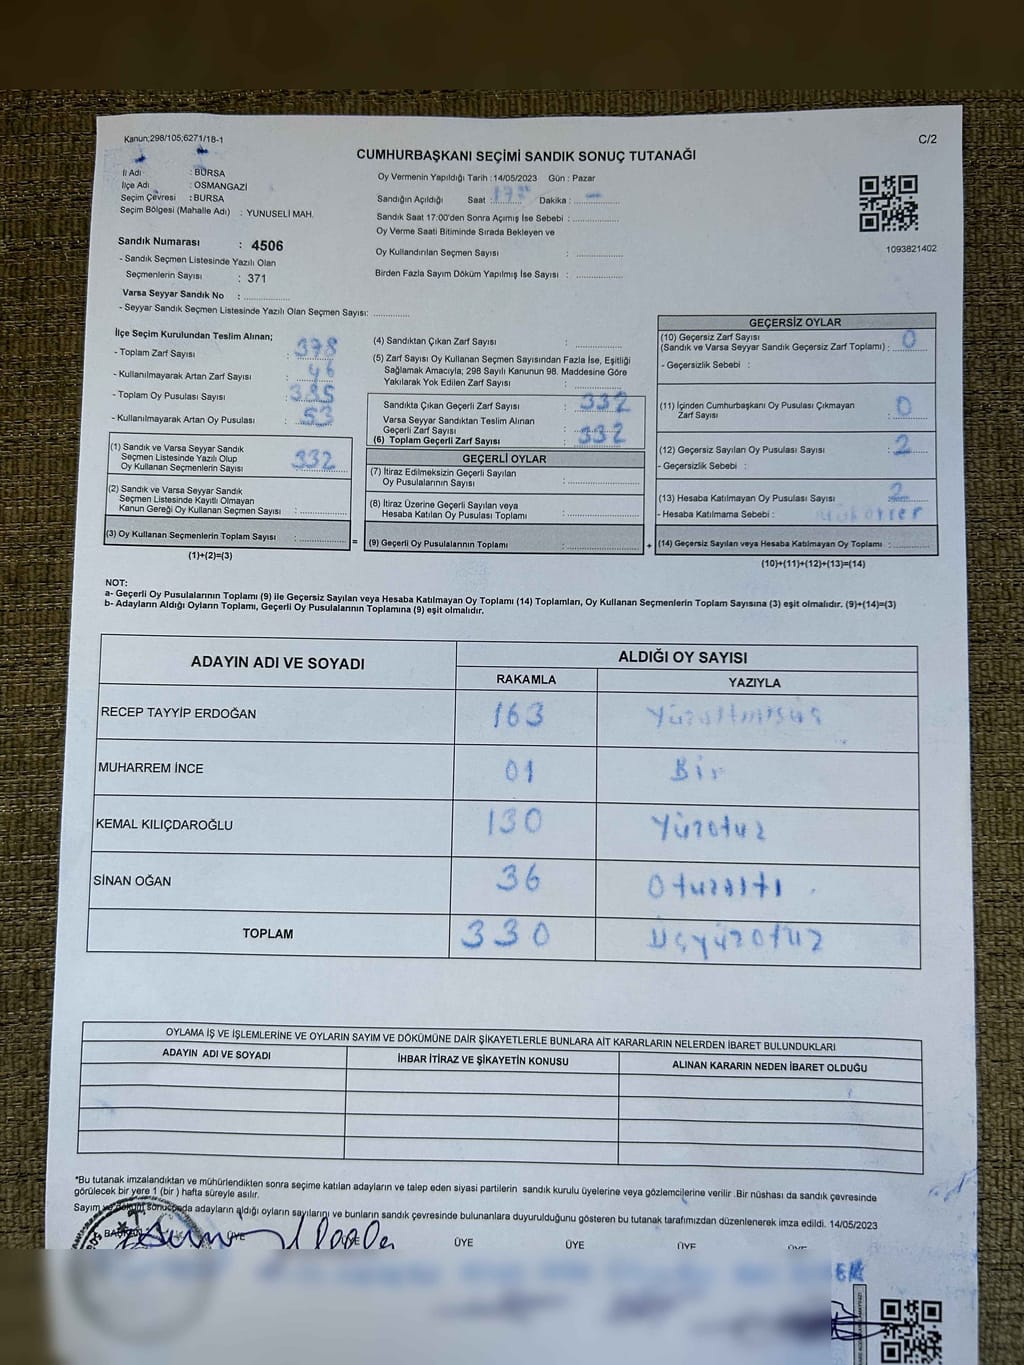 Kanun;298/105;6271/18-1
C/2
CUMHURBAŞKANI SEÇİMİ SANDIK SONUÇ TUTANAĞI
İl Adı : BURSA
İlçe Adı : OSMANGAZİ
Seçim Çevresi : BURSA
Seçim Bölgesi (Mahalle Adı) : YUNUSELİ MAH.
Sandık Numarası : 4506
- Sandık Seçmen Listesinde Yazılı Olan
Seçmenlerin Sayısı : 371
Varsa Seyyar Sandık No : ................
- Seyyar Sandık Seçmen Listesinde Yazılı Olan Seçmen Sayısı: ............
Oy Vermenin Yapıldığı Tarih : 14/05/2023 Gün : Pazar
Sandığın Açıldığı Saat : Dakika :
Sandık Saat 17:00'den Sonra Açımış İse Sebebi : ................
Oy Verme Saati Bitiminde Sırada Bekleyen ve
Oy Kullandırılan Seçmen Sayısı : ................
Birden Fazla Sayım Döküm Yapılmış İse Sayısı : ................
1093821402
İlçe Seçim Kurulundan Teslim Alınan;
- Toplam Zarf Sayısı : 378
- Kullanılmayarak Artan Zarf Sayısı : 46
- Toplam Oy Pusulası Sayısı : 385
- Kullanılmayarak Artan Oy Pusulası : 53
(1) Sandık ve Varsa Seyyar Sandık
Seçmen Listesinde Yazılı Olup
Oy Kullanan Seçmenlerin Sayısı : 332
(2) Sandık ve Varsa Seyyar Sandık
Seçmen Listesinde Kayıtlı Olmayan
Kanun Gereği Oy Kullanan Seçmen Sayısı : ................
(3) Oy Kullanan Seçmenlerin Toplam Sayısı : ................
(1)+(2)=(3)
=
(4) Sandıktan Çıkan Zarf Sayısı : ................
(5) Zarf Sayısı Oy Kullanan Seçmen Sayısından Fazla İse, Eşitliği
Sağlamak Amacıyla; 298 Sayılı Kanunun 98. Maddesine Göre
Yakılarak Yok Edilen Zarf Sayısı : ................
Sandıkta Çıkan Geçerli Zarf Sayısı : 332
Varsa Seyyar Sandıktan Teslim Alınan
Geçerli Zarf Sayısı :
(6) Toplam Geçerli Zarf Sayısı : 332
GEÇERLİ OYLAR
(7) İtiraz Edilmeksizin Geçerli Sayılan
Oy Pusulalarının Sayısı : ................
(8) İtiraz Üzerine Geçerli Sayılan veya
Hesaba Katılan Oy Pusulası Toplamı : ................
(9) Geçerli Oy Pusulalarının Toplamı : ................
+
GEÇERSİZ OYLAR
(10) Geçersiz Zarf Sayısı
(Sandık ve Varsa Seyyar Sandık Geçersiz Zarf Toplamı) : 0
- Geçersizlik Sebebi :
(11) İçinden Cumhurbaşkanı Oy Pusulası Çıkmayan
Zarf Sayısı : 0
(12) Geçersiz Sayılan Oy Pusulası Sayısı : 2
- Geçersizlik Sebebi :
(13) Hesaba Katılmayan Oy Pusulası Sayısı : 2
- Hesaba Katılmama Sebebi :
(14) Geçersiz Sayılan veya Hesaba Katılmayan Oy Toplamı : ............
(10)+(11)+(12)+(13)=(14)
NOT:
a- Geçerli Oy Pusulalarının Toplamı (9) ile Geçersiz Sayılan veya Hesaba Katılmayan Oy Toplamı (14) Toplamları, Oy Kullanan Seçmenlerin Toplam Sayısına (3) eşit olmalıdır. (9)+(14)=(3)
b- Adayların Aldığı Oyların Toplamı, Geçerli Oy Pusulalarının Toplamına (9) eşit olmalıdır.
ADAYIN ADI VE SOYADI
ALDIĞI OY SAYISI
RAKAMLA
YAZIYLA
RECEP TAYYİP ERDOĞAN 163 Yüzaltmışüç
MUHARREM İNCE 01 Bir
KEMAL KILIÇDAROĞLU 130 Yüzotuz
SİNAN OĞAN 36 Otuzaltı
TOPLAM 330 Üçyüzotuz
OYLAMA İŞ VE İŞLEMLERİNE VE OYLARIN SAYIM VE DÖKÜMÜNE DAİR ŞİKAYETLERLE BUNLARA AİT KARARLARIN NELERDEN İBARET BULUNDUKLARI
ADAYIN ADI VE SOYADI
İHBAR İTİRAZ VE ŞİKAYETİN KONUSU
ALINAN KARARIN NEDEN İBARET OLDUĞU
*Bu tutanak imzalandıktan ve mühürlendikten sonra seçime katılan adayların ve talep eden siyasi partilerin sandık kurulu üyelerine veya gözlemcilerine verilir .Bir nüshası da sandık çevresinde
görülecek bir yere 1 (bir ) hafta süreyle asılır.
Sayım ve döküm sonucunda adayların aldığı oyların sayılarını ve bunların sandık çevresinde bulunanlara duyurulduğunu gösteren bu tutanak tarafımızdan düzenlenerek imza edildi. 14/05/2023
ÜYE ÜYE ÜYE ÜYE ÜYE